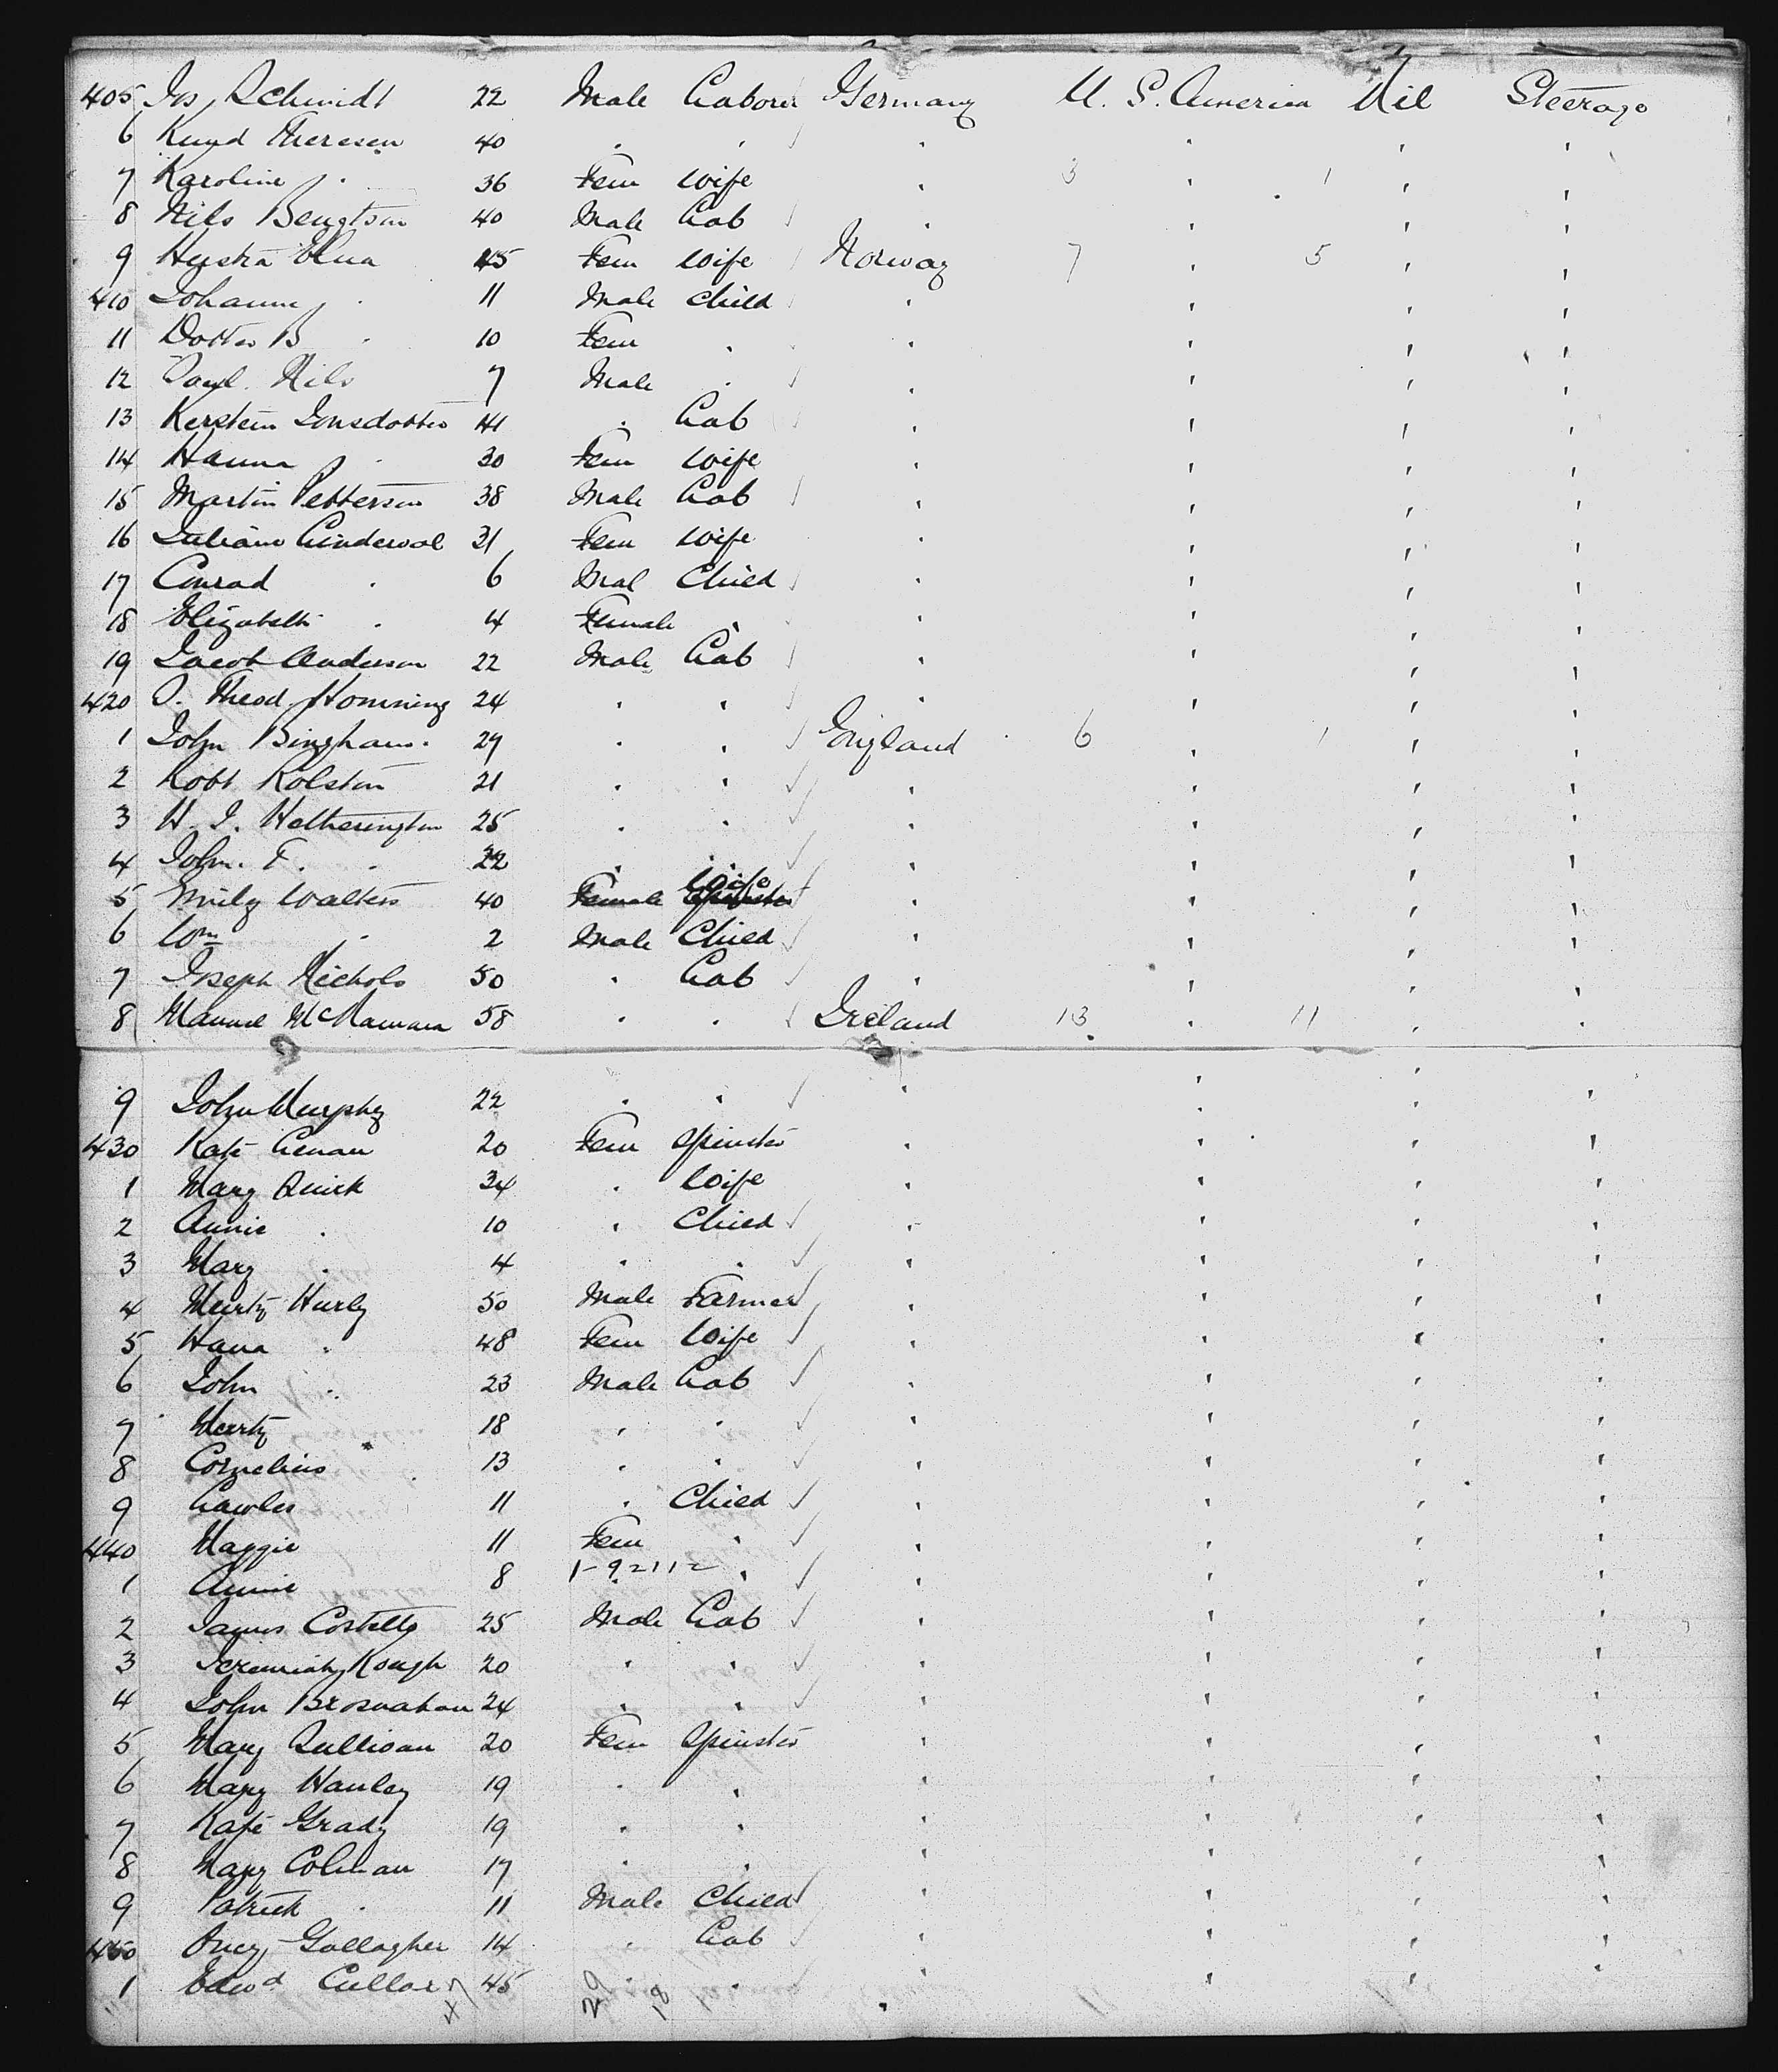 405 Jos Schmidt 22 Male Laborer Germany U. S. America Nil Steerage
6 Knud Theresen 40 " " " " " "
7 Karoline " 36 Fem Wife " 3 " 1 " "
8 Nils Bengtson 40 Male Lab " " " "
9 Elna 45 Fem Wife Norway 7 " 5 " "
410 Johanna " 11 Male Child " " " "
11 Dotter B " 10 Fem " " " " "
12 Nils 7 Male " " " " "
13 Kerstein Jonsdotter 41 " Lab " " " "
14 Hanna " 30 Fem Wife " " " "
15 Martin Petterson 38 Male Lab " " " "
16 Juliane 31 Fem Wife " " " "
17 Conrad " 6 Mal Child " " " "
18 Elizabeth " 4 Female " " " " "
19 Jacob Anderson 22 Male Lab " " " "
420 Theod. 24 " " " " " "
1 John Bingham. 29 " " England 6 " 1 " "
2 Robt Rolston 21 " " " " " "
3 H. J. Hetherington 25 " " " " " "
4 John. F. " 22 " " " " " "
5 Emily Walters 40 Female Wife " " " "
6 Wm " 2 Male Child " " " "
7 Joseph Nichols 50 " Lab " " " "
8 McNamara 58 " " Ireland 13 " 11 " "
9 John Murphy 22 " " " " " "
430 Kate Lenan 20 Fem Spinster " " " "
1 Mary Quirk 34 " Wife " " " "
2 Annie " 10 " Child " " " "
3 Mary " 4 " " " " " "
4 Murty Hurly 50 Male Farmer " " " "
5 Hana " 48 Fem Wife " " " "
6 John " 23 Male Lab " " " "
7 Murty 18 " " " " " "
8 Cornelius " 13 " " " " " "
9 11 " Child " " " "
440 Maggie 11 Fem " " " " "
1 Annie 8 1-9211- " " " " "
2 James Costello 25 Male Lab " " " "
3 Jeremiah Keough 20 " " " " " "
4 John Brosnahan 24 " " " " " "
5 Mary Sullivan 20 Fem Spinster " " " "
6 Mary Hanley 19 " " " " " "
7 Kate Grady 19 " " " " " "
8 Mary Colman 17 " " " " " "
9 Patrick " 11 Male Child " " " "
450 Gallagher 14 " Lab " " " "
1 Edwd 45 " " " " " "
47 29 18